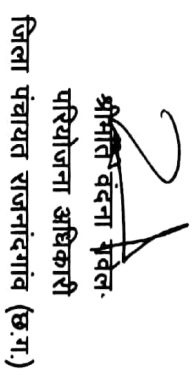 श्रीमति वंदना धुर्वे
परियोजना अधिकारी
जिला पंचायत राजनांदगांव (छ.ग.)